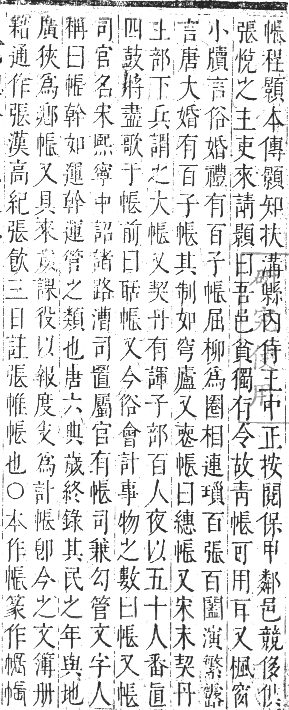 帳程顥本傳顥知扶溝縣內侍王中正按閱保甲鄰邑競侈供
張悅之主吏來請顥曰吾邑貧獨有令故青帳可用耳又楓窗
小牘言俗婚禮有百子帳屈柳爲圈相連瑣百張百闔演繁露
言唐大婚有百子帳其制如穹廬又㤅帳曰繐帳又宋末契丹
主部下兵謂之大帳又契丹有諢子部百人夜以五十人番直
四鼓將盡歌于帳前曰聒帳又今俗會計事物之數曰帳又帳
司官名宋熙寧中詔諸路漕司置屬官有帳司兼勾管文字人
稱曰帳幹如運幹運管之類也唐六典歲終錄其民之年與地
廣狹爲鄉帳又具來歲課役以報度支爲計帳卽今之文簿册
籍通作張漢高紀張飲三日註張帷帳也○本作帳篆作